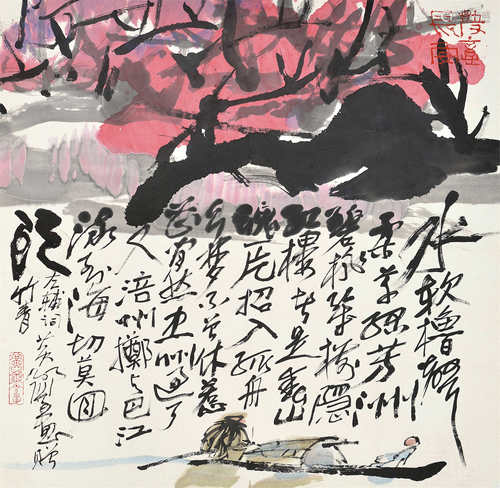 水软橹声
柔草绿芳洲
碧桃几树隐
红楼者是春山
魂一片招入孤舟
乡梦不曾休惹
甚闲愁忠州过了
又涪州掷与巴江
流到海切莫回
头
左辅词
竹青